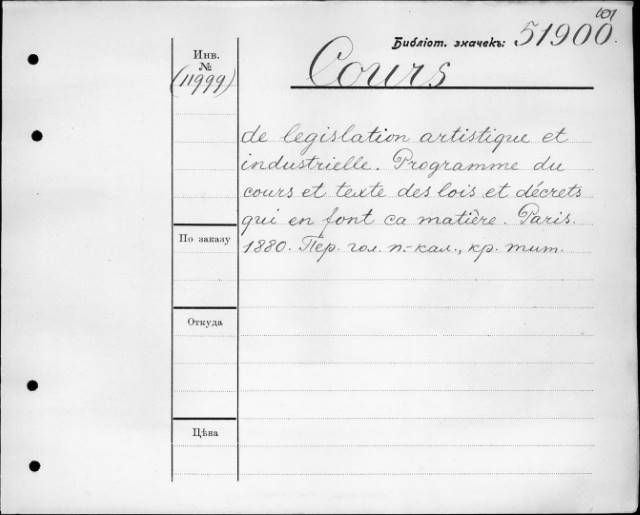 101
Библіот. значекъ: 51900.
Инв.
№
(11999)
Cours
de legislation artistique et
industrielle. Programme du
cours et texte des lois et décrets
qui en font ca matière. Paris.
1880. Пер. гол. п.-кал., кр. тит.
По заказу
Откуда
Цѣна